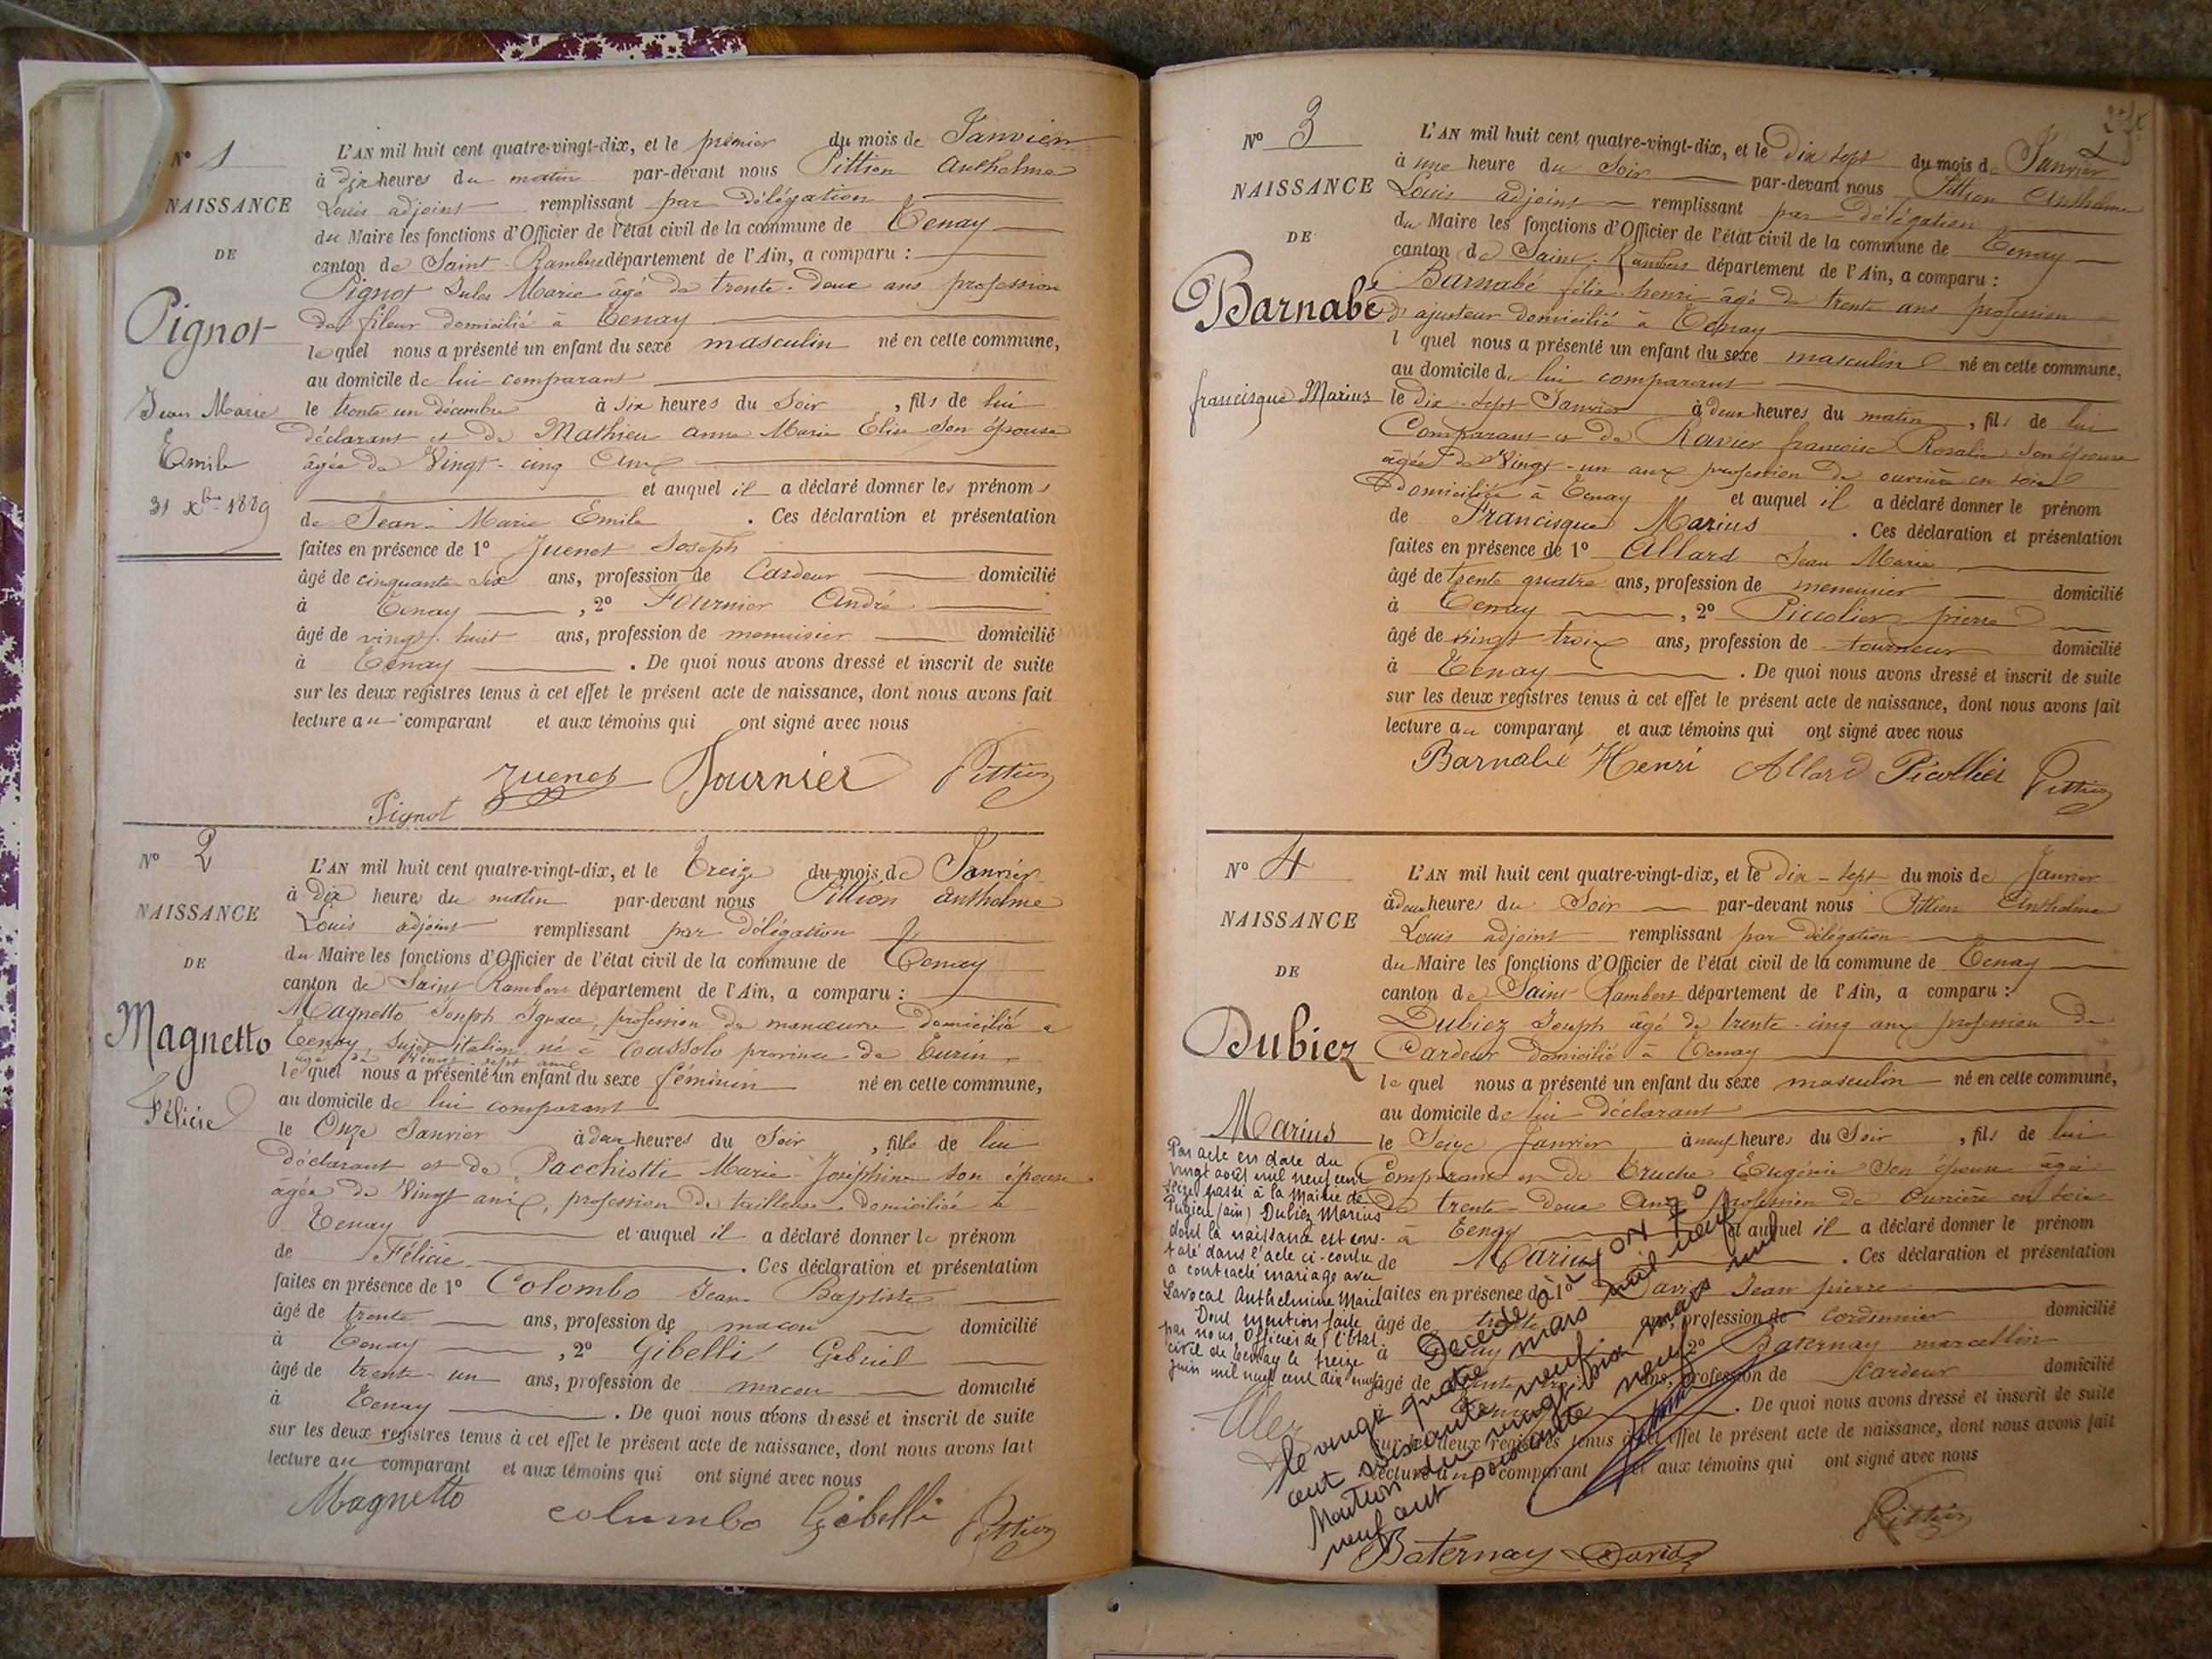 N° 1
NAISSANCE
DE
Pignot
Jean Marie
Emile
31 Xbre 1889
L'AN mil huit cent quatre-vingt-dix, et le premier du mois de Janvier
à dix heures du matin par-devant nous Pittion Anthelme
Louis adjoint remplissant par délégation
du Maire les fonctions d'Officier de l'état civil de la commune de Tenay
canton de Saint-Rambert département de l'Ain, a comparu :
Pignot Jules Marie âgé de trente-deux ans profession
de fileur domicilié à Tenay
lequel nous a présenté un enfant du sexe masculin né en cette commune,
au domicile de lui comparant
le trente un décembre à six heures du Soir, fils de lui
déclarant et de Mathieu anne Marie Elise Son épouse
âgée de Vingt-cinq ans
et auquel il a déclaré donner les prénoms
de Jean-Marie Emile. Ces déclaration et présentation
faites en présence de 1° Juenet Joseph
âgé de cinquante six ans, profession de Cardeur domicilié
à Tenay, 2° Fournier André
âgé de vingt-huit ans, profession de menuisier domicilié
à Tenay. De quoi nous avons dressé et inscrit de suite
sur les deux registres tenus à cet effet le présent acte de naissance, dont nous avons fait
lecture au comparant et aux témoins qui ont signé avec nous
Pignot Juenet Fournier Pittion
N° 2
NAISSANCE
DE
Magnetto
Félicie
L'AN mil huit cent quatre-vingt-dix, et le Treize du mois de Janvier
à Dix heures du matin par-devant nous Pittion anthelme
Louis adjoint remplissant par délégation
du Maire les fonctions d'Officier de l'état civil de la commune de Tenay
canton de Saint Rambert département de l'Ain, a comparu :
Magnetto Joseph Ignace, profession de manœuvre domicilié à
Tenay, sujet italien né à Coassolo province de Turin
âgé de vingt sept ans
lequel nous a présenté un enfant du sexe féminin né en cette commune,
au domicile de lui comparant
le Onze Janvier à deux heures du Soir, fille de lui
déclarant et de Pacchiotti Marie-Joséphine son épouse
âgée de Vingt ans, profession de tailleuse domiciliée à
Tenay et auquel il a déclaré donner le prénom
de Félicie. Ces déclaration et présentation
faites en présence de 1° Colombo Jean Baptiste
âgé de trente ans, profession de macon domicilié
à Tenay, 2° Gibelli Gabriel
âgé de trente-un ans, profession de macon domicilié
à Tenay. De quoi nous avons dressé et inscrit de suite
sur les deux registres tenus à cet effet le présent acte de naissance, dont nous avons fait
lecture au comparant et aux témoins qui ont signé avec nous
Magnetto columbo Gibelli Pittion
N° 3
NAISSANCE
DE
Barnabé
francisque Marius
L'AN mil huit cent quatre-vingt-dix, et le Dix sept du mois de Janvier
à une heure du Soir par-devant nous Pittion Anthelme
Louis adjoint remplissant par délégation
du Maire les fonctions d'Officier de l'état civil de la commune de Tenay
canton de Saint-Rambert département de l'Ain, a comparu :
Barnabé félix henri âgé de trente ans profession
d'ajusteur domicilié à Tenay
l quel nous a présenté un enfant du sexe masculin né en cette commune,
au domicile de lui comparant
le Dix-sept Janvier à deux heures du matin, fils de lui
Comparant et de Ravier françoise Rosalie Son épouse
âgée de Vingt-un ans profession de ouvrière en soie
Domiciliée à Tenay et auquel il a déclaré donner le prénom
de Francisque Marius. Ces déclaration et présentation
faites en présence de 1° Allard Jean Marie
âgé de trente quatre ans, profession de menuisier domicilié
à Tenay, 2° Piccolier pierre
âgé de vingt trois ans, profession de tourneur domicilié
à Tenay. De quoi nous avons dressé et inscrit de suite
sur les deux registres tenus à cet effet le présent acte de naissance, dont nous avons fait
lecture au comparant et aux témoins qui ont signé avec nous
Barnabé Henri Allard Picollier Pittion
N° 4
NAISSANCE
DE
Dubiez
Marius
Par acte en date du
vingt août mil neuf cent
seize passé à la Mairie de
Pugieu (ain) Dubiez Marius
dont la naissance est cons-
taté dans l'acte ci-contre
a contracté mariage avec
Lavocat Anthelmine Marie
Dont mention faite
par nous Officier de l'état
civil de Tenay le treize
juin mil neuf cent dix neuf
L'AN mil huit cent quatre-vingt-dix, et le dix-sept du mois de Janvier
à deux heures du Soir par-devant nous Pittion Anthelme
Louis adjoint remplissant par délégation
du Maire les fonctions d'Officier de l'état civil de la commune de Tenay
canton de Saint Rambert département de l'Ain, a comparu :
Dubiez Joseph âgé de trente-cinq ans profession de
Cardeur domicilié à Tenay
lequel nous a présenté un enfant du sexe masculin né en cette commune,
au domicile de lui déclarant
le Seize Janvier à neuf heures du Soir, fils de lui
Comparant et de Truche Eugénie Son épouse âgée
de trente-deux ans profession de Ouvrière en soie
à Tenay et auquel il a déclaré donner le prénom
de Marius. Ces déclaration et présentation
faites en présence de 1° David Jean pierre
âgé de trente ans, profession de cordonnier domicilié
à Tenay, 2° Baternay marcellin
âgé de trente ans, profession de Cardeur domicilié
à Tenay. De quoi nous avons dressé et inscrit de suite
sur les deux registres tenus à cet effet le présent acte de naissance, dont nous avons fait
lecture au comparant et aux témoins qui ont signé avec nous
Décédé à Lyon
le vingt quatre mars mil neuf
cent soixante neuf
Mention du vingt six mars mil
neuf cent soixante neuf
Baternay David Pittion